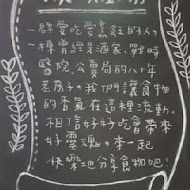 一群愛吃營意起的人，
一棟曾經是酒家、戰時
醫院、公賣局的八十年
老房子。我們讓食物
的香氣在這裡流動。
相信好好吃會帶來
好靈魂。來一起
快樂地分享食物吧！